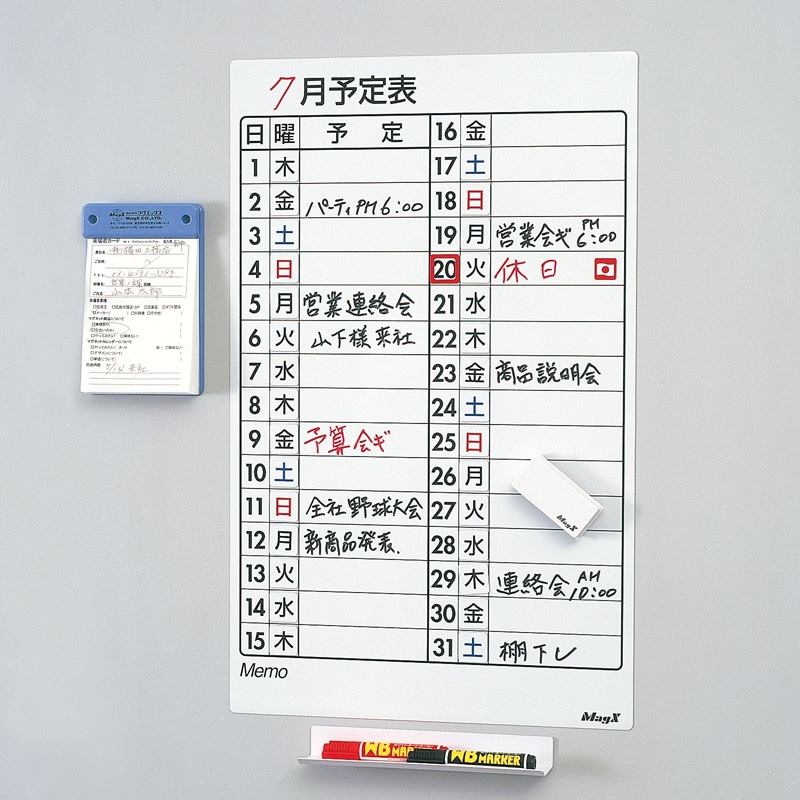 7月予定表
日 曜 予定
1 木
2 金 パーティPM6:00
3 土
4 日
5 月 営業連絡会
6 火 山下様来社
7 水
8 木
9 金 予算会ギ
10 土
11 日 全社野球大会
12 月 新商品発表.
13 火
14 水
15 木
16 金
17 土
18 日
19 月 営業会ギ PM 6:00
20 火 休日
21 水
22 木
23 金 商品説明会
24 土
25 日
26 月
27 火
28 水
29 木 連絡会 AM 10:00
30 金
31 土 棚下し
Memo
MagX
MagX
株式会社マグエックス
MagX CO.,LTD.
来場者カード
山本太郎
7/14 来社
WB MARKER
WB MARKER